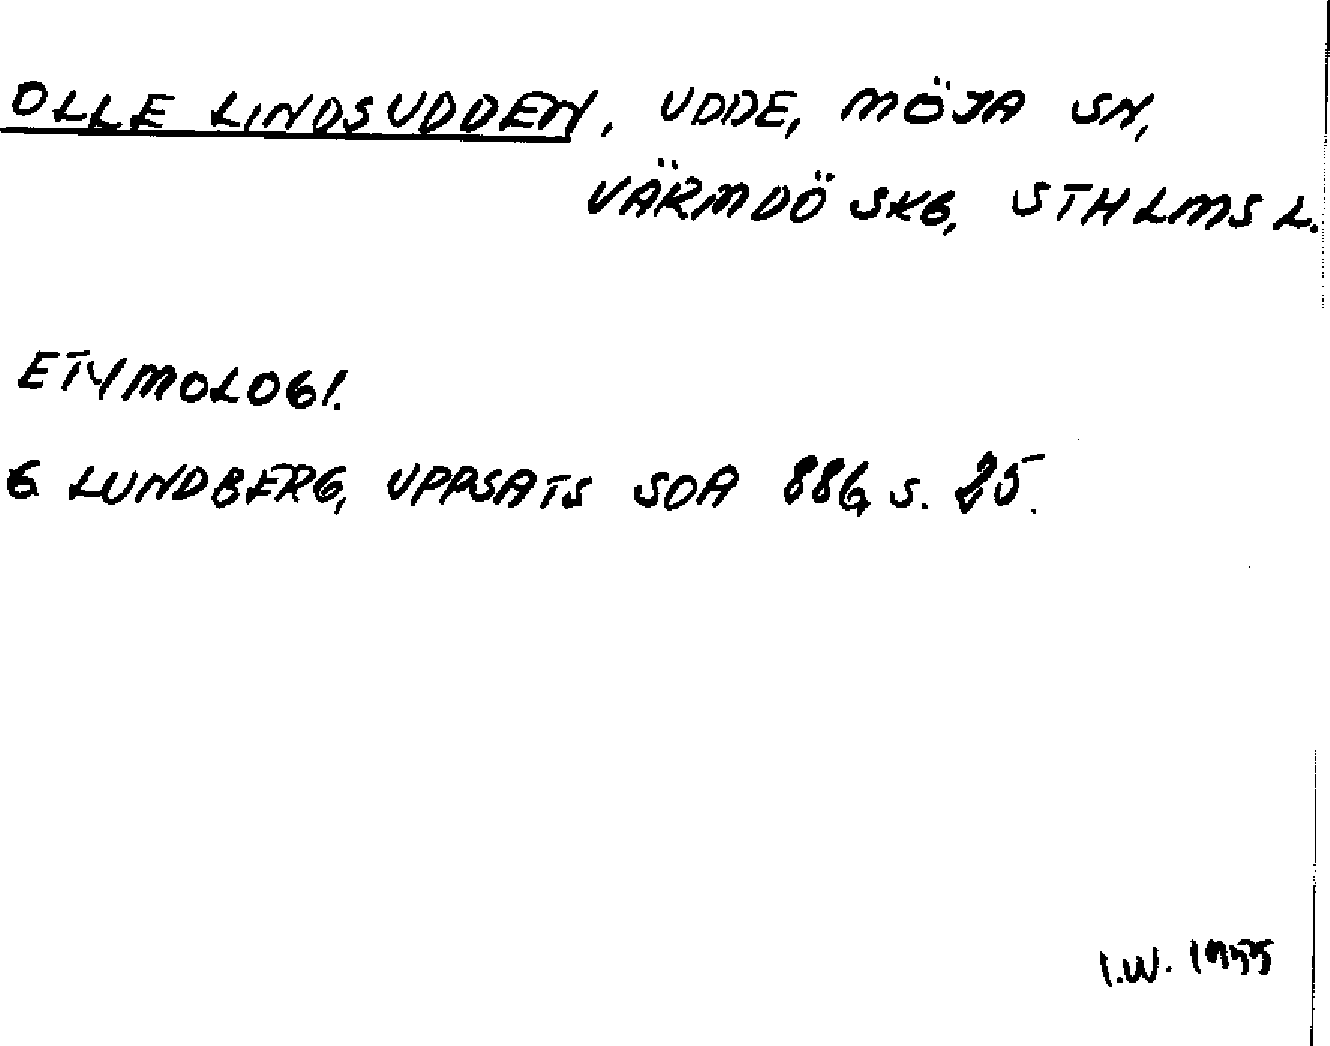 OLLE LINDSUDDEN, UDDE, MÖJA SN,
VÄRMDÖ SKG, STHLMS L.
ETYMOLOGI.
G LUNDBERG, UPPSATS SOA 886 s. 25.
I.W. 1955